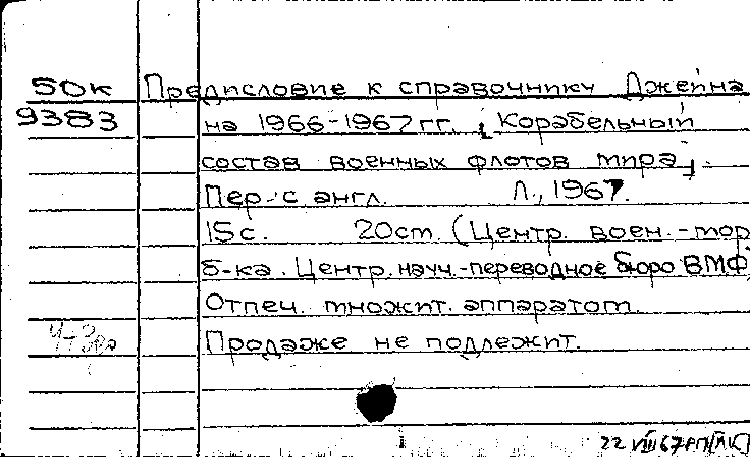 50к Предисловие к справочнику Джейна
9383 на 1966-1967 гг. [Корабельный
состав военных флотов мира].
Пер. с англ. Л., 1967.
15с. 20 см. (Центр. воен.-мор
б-ка. Центр. науч.-переводное бюро ВМФ)
Отпеч. множит. аппаратом.
Продаже не подлежит.
22 VIII 67